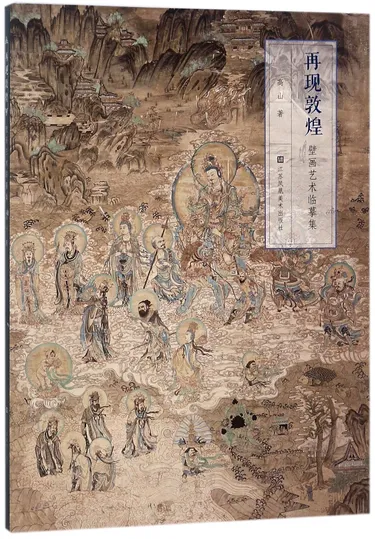 再现敦煌
壁画艺术临摹集
高山 著
江苏凤凰美术出版社